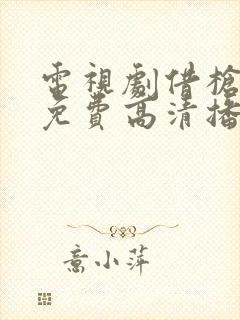 電視劇借槍
免費高清播
意小萍